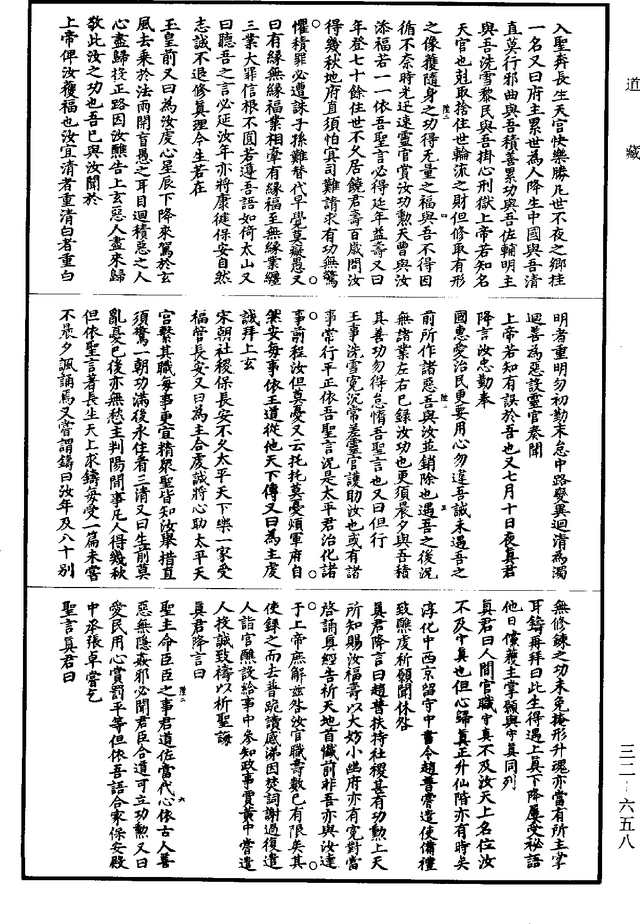 道藏
三二－六五八
入聖奔長生天宮快樂勝凡世不夜之鄉挂
一名又曰府主累世為人降生中國與吾清
直莫行邪曲與吾積善累功與吾佐輔明主
與吾洗雪黎民與吾掛心刑獄上帝若知名
天官也剋取捨住世輪流之財但修取有形
之像獲隨身之功得无量之福與吾不得因
循不奈時光迅速靈官賞汝功勲天曹與汝
添福若一一依吾聖言必得延年益壽又曰
年登七十餘住世不久居饒君壽百歲問汝
得幾秋地府直須怕冥司難請求有功無驚
懼積罪必遭誅子孫難替代早覺莫癡愚又
曰有緣無緣福業相牽有緣福至無緣業纏
三業大罪信根不圓若違吾語如倚太山又
曰聽吾之言必延汝年亦將康健保安自然
志誠不退修真理今生若在
玉皇前又曰為汝虔心星辰下降來駕於玄
風去乘於法雨開盲愚之耳目迴積惡之人
心盡歸投正路因汝醮告上玄惡人盡來歸
敬此汝之功也吾已與汝聞於
上帝俾汝獲福也汝宜清者重清白者重白
明者重明勿初勤末怠中路廢興迴清為濁
迴善為惡設靈官奏聞
上帝若知有誤於吾也又七月十日夜真君
降言汝忠勤奉
國惠愛治民更要用心勿違吾誡未遇吾之
前所作諸惡吾與汝並銷除也遇吾之後況
無諸業左右已録汝功也更須晨夕與吾積
其善功勿得怠惰吾聖言也又曰但行
王事洗雪寃沉常差靈官護助汝也或有諸
事常行平正依吾聖言況是太平君治化諸
事前程汝但莫憂又云托托莫憂煩軍府自
然安每事依王道從他天下傳又曰為主虔
誠拜上玄
宋朝社稷保長安不久太平天下樂一家受
福管長安又曰為主合虔誠將心助太平天
宮繫其職每事更宣精眾聖皆知汝舉措直
須驚一朝功滿後永住看三清又曰生前莫
亂憂已後亦無愁主判陽間事凡人得幾秋
但依聖言著長生天上求鑄每受一篇未嘗
不晨夕諷誦焉又嘗謂鑄曰汝年及八十別
無修鍊之功未免掩形升魂亦當有所主掌
耳鑄再拜曰此生得遇上真下降屢受秘語
他日儻獲主掌願與守真同列
真君曰人間官職守真不及汝天上名位汝
不及守真也但心歸真正升仙階亦有時矣
淳化中西京留守中書令趙普嘗遣使備禮
致醮虔祈願聞休咎
真君降言曰趙普扶持社稷甚有功勲上天
所知賜汝福壽以大妨小幽府亦有寃對當
啓誦真經告祈天地首懺前非吾亦與汝達
于上帝庶解茲咎汝官職壽數已有限矣其
使録之而去普跪讀感涕因焚詞謝過復遣
人詣宮醮設給事中參知政事賈黃中嘗遣
人投誠致禱以祈聖誨
真君降言曰
聖主命臣臣之事君道佐當代心依古人善
惡無隱姦邪必聞君臣合道可立功勲又曰
愛民用心賞罰平等但依吾語合家保安殿
中丞張卓嘗乞
聖言真君曰